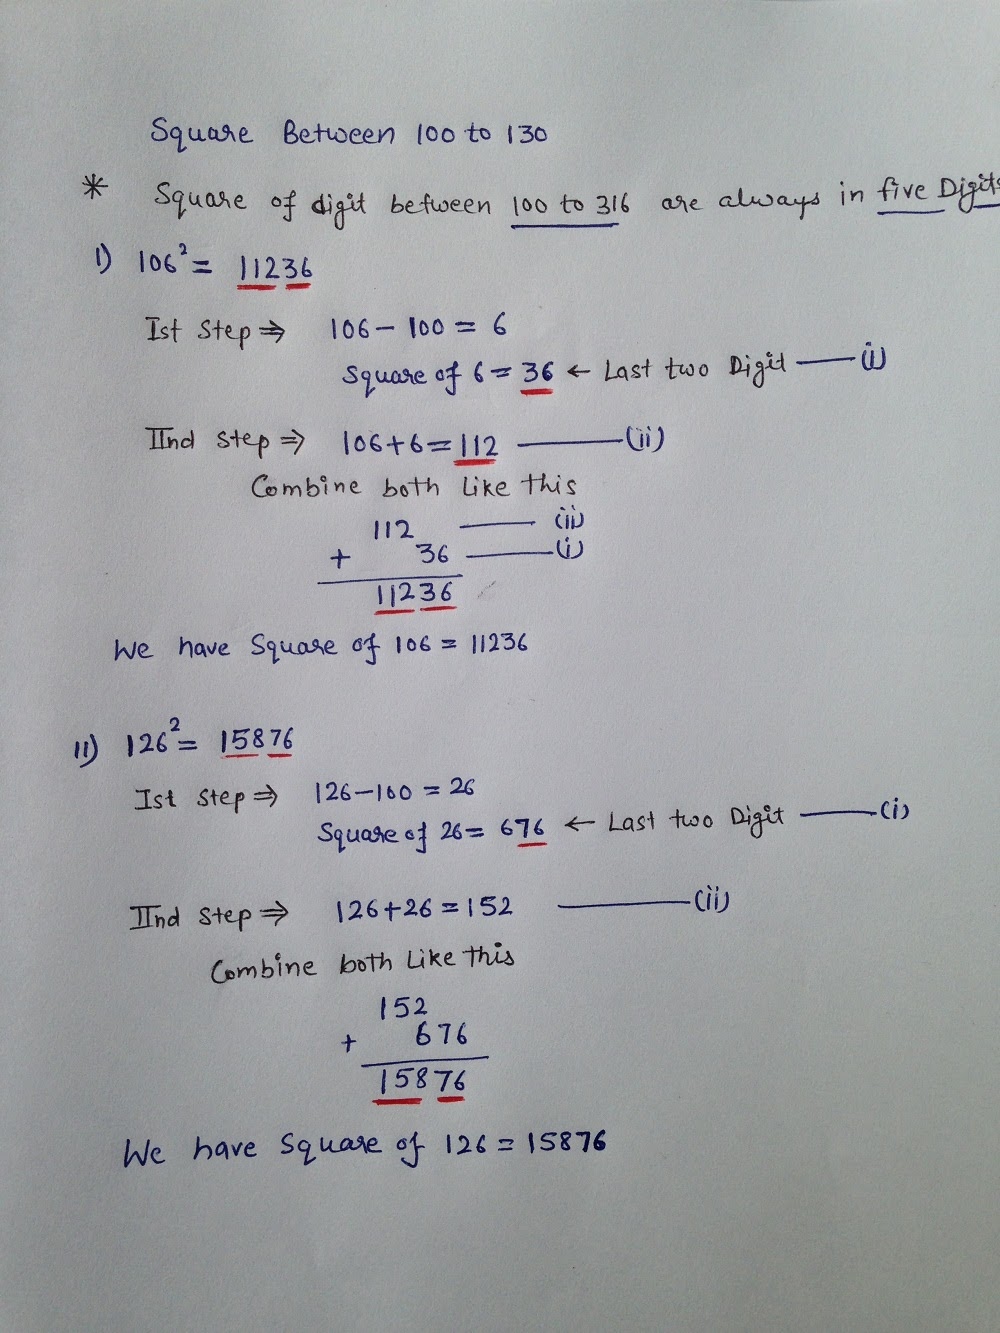 Square Between 100 to 130
* Square of digit between 100 to 316 are always in five Digits
I) 106² = 11236
Ist Step ⇒ 106 - 100 = 6
Square of 6 = 36 ← Last two Digit —— (i)
IInd Step ⇒ 106+6 = 112 —— (ii)
Combine both Like this
112 —— (ii)
+ 36 —— (i)
11236
We have Square of 106 = 11236
II) 126² = 15876
Ist Step ⇒ 126-100 = 26
Square of 26 = 676 ← Last two Digit —— (i)
IInd Step ⇒ 126+26 = 152 —— (ii)
Combine both Like this
152
+ 676
15876
We have Square of 126 = 15876